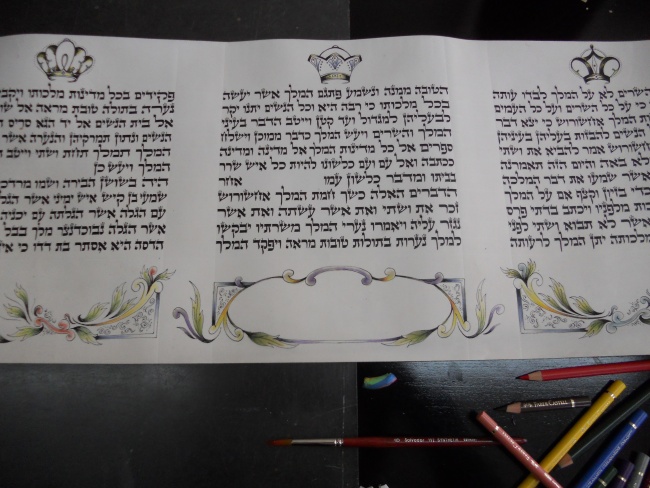 השרים לא על המלך לבדו עותה
כי על כל השרים ועל כל העמים
המלך אחשורוש כי יצא דבר
הנשים להבזות בעליהן בעיניהן
אמר להביא את ושתי
לא באה והיום הזה תאמרנה
אשר שמעו את דבר המלכה
כדי בזיון וקצף אם על המלך
מלפניו ויכתב בדתי פרס
אשר לא תבוא ושתי לפני
מלכותה יתן המלך לרעותה
הטובה ממנה ונשמע פתגם המלך אשר יעשה
בכל מלכותו כי רבה היא וכל הנשים יתנו יקר
לבעליהן למגדול ועד קטן וייטב הדבר בעיני
המלך והשרים ויעש המלך כדבר ממוכן וישלח
ספרים אל כל מדינות המלך אל מדינה ומדינה
ככתבה ואל עם ועם כלשונו להיות כל איש שרר
בביתו ומדבר כלשון עמו אחר
הדברים האלה כשך חמת המלך אחשורוש
זכר את ושתי ואת אשר עשתה ואת אשר
נגזר עליה ויאמרו נערי המלך משרתיו יבקשו
למלך נערות בתולות טובות מראה ויפקד המלך
פקידים בכל מדינות מלכותו
נערה בתולה טובת מראה אל
אל בית הנשים אל יד הגא סריס
הנשים ונתון תמרוקיהן והנערה אשר
המלך תמלך תחת ושתי וייטב
המלך ויעש כן
היה בשושן הבירה ושמו מרדכי
שמעי בן קיש איש ימיני אשר
עם הגלה אשר הגלתה עם יכניה
אשר הגלה נבוכדנצר מלך בבל
הדסה היא אסתר בת דדו כי
FABER-CASTELL